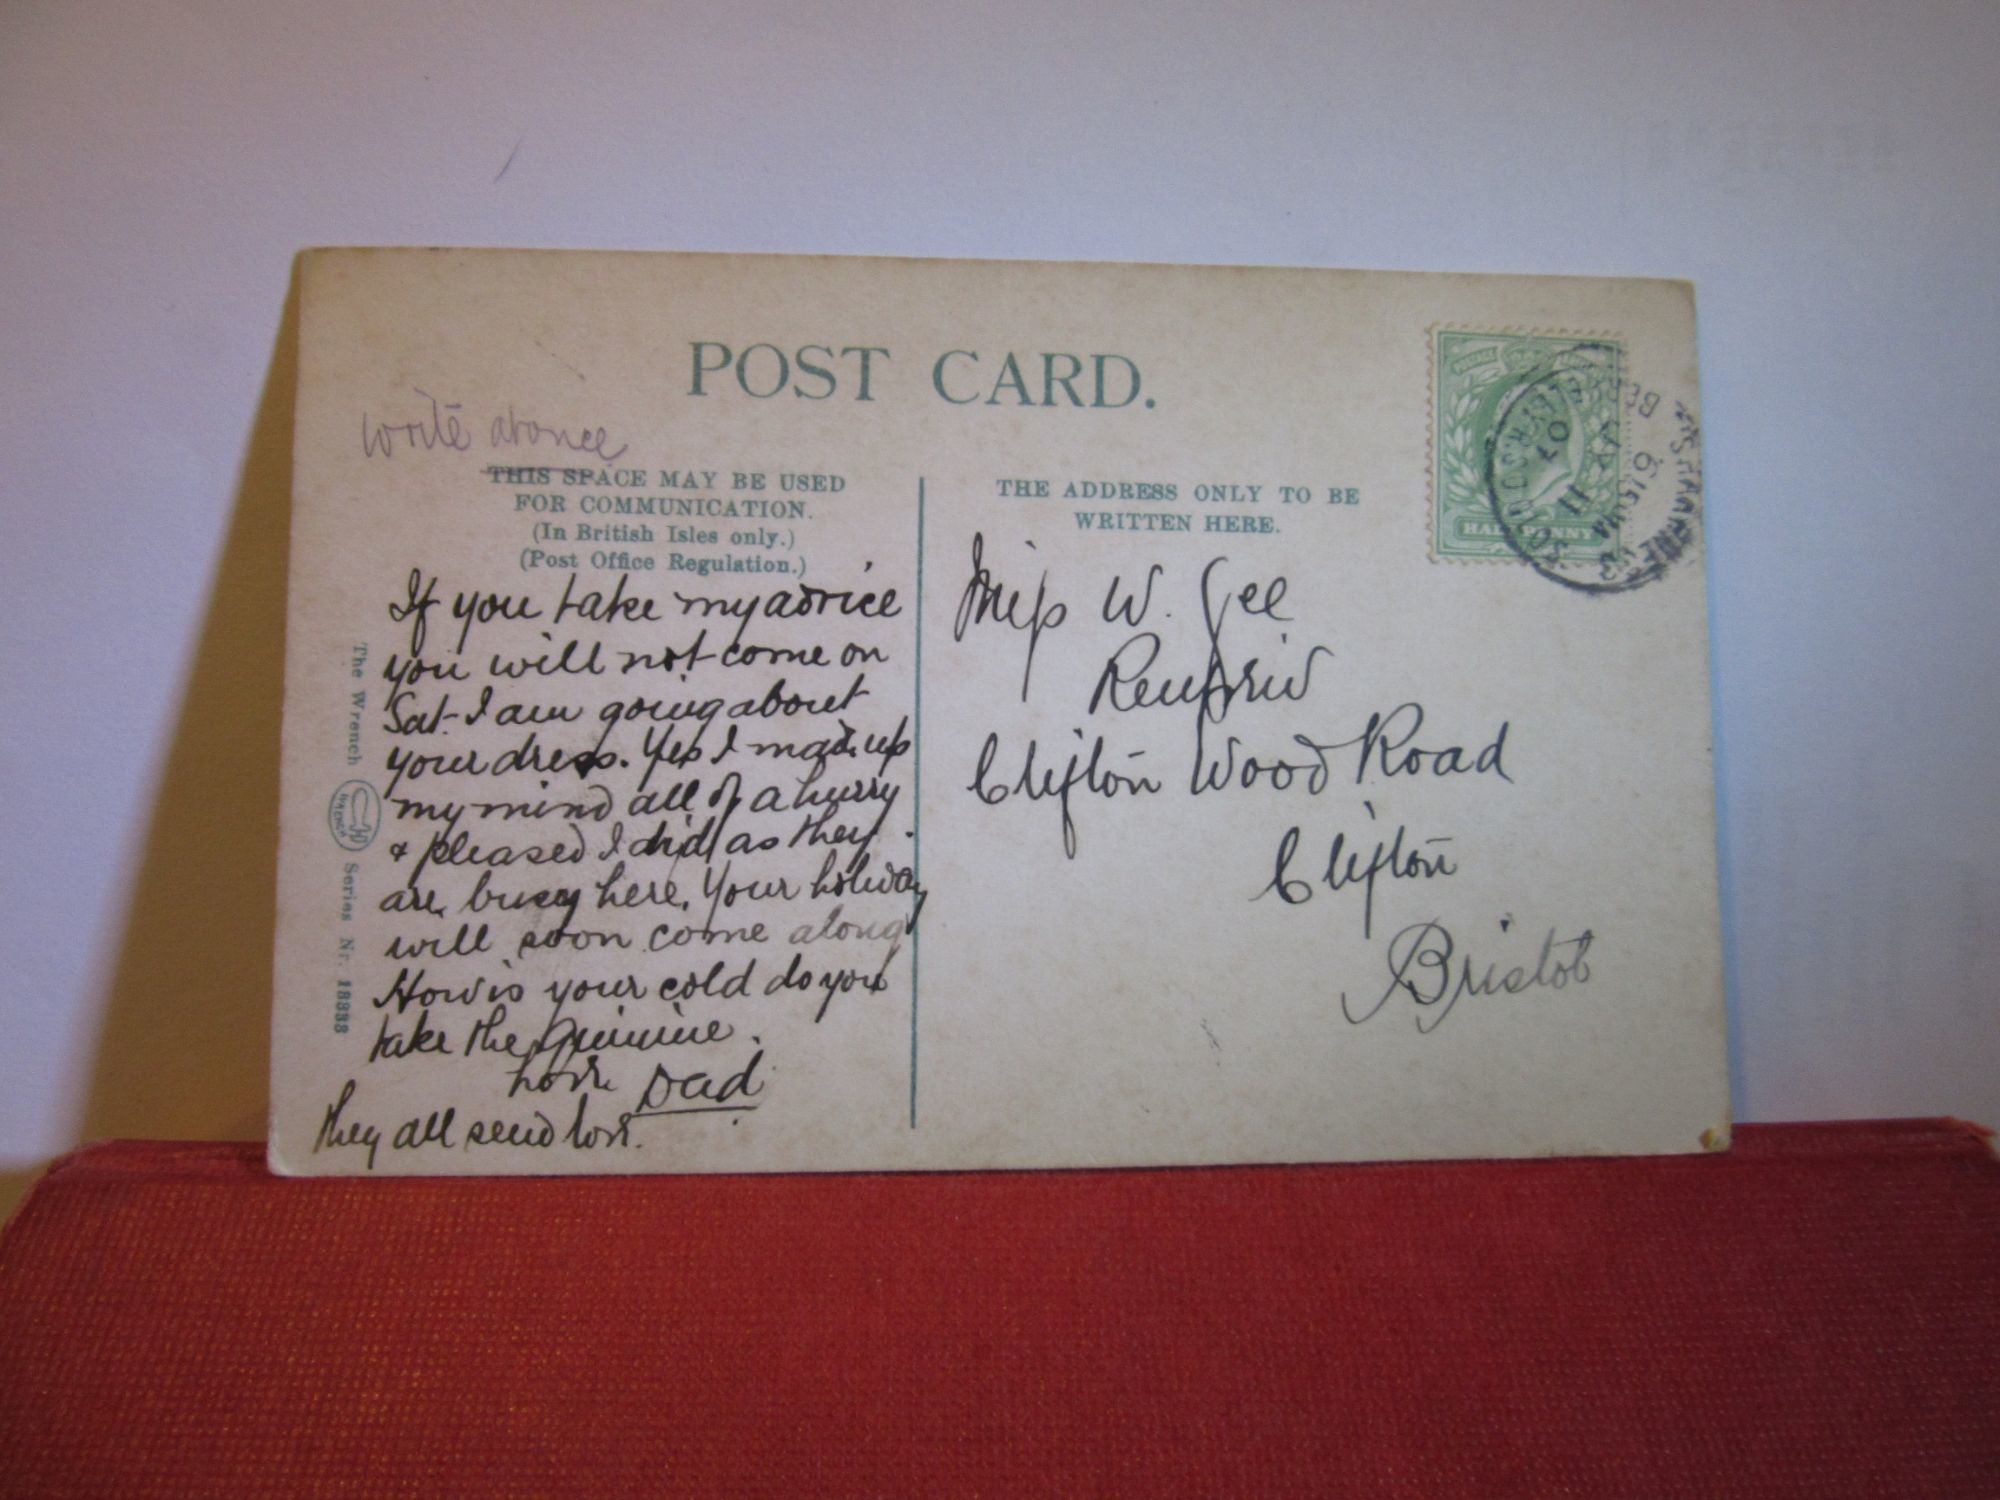 POST CARD.
write at once
THIS SPACE MAY BE USED
FOR COMMUNICATION.
(In British Isles only.)
(Post Office Regulation.)
If you take my advice
you will not come on
Sat. I am going about
your dress. Yes I made up
my mind all of a hurry
& pleased I did as they
are busy here. Your holiday
will soon come along
How is your cold do you
take the Quinine.
love Dad
they all send love.
The Wrench
WRENCH
Series Nr. 18888
THE ADDRESS ONLY TO BE
WRITTEN HERE.
Miss W. Gee
Clifton Wood Road
Clifton
Bristol
HALFPENNY
6 15 PM
MY 11
07